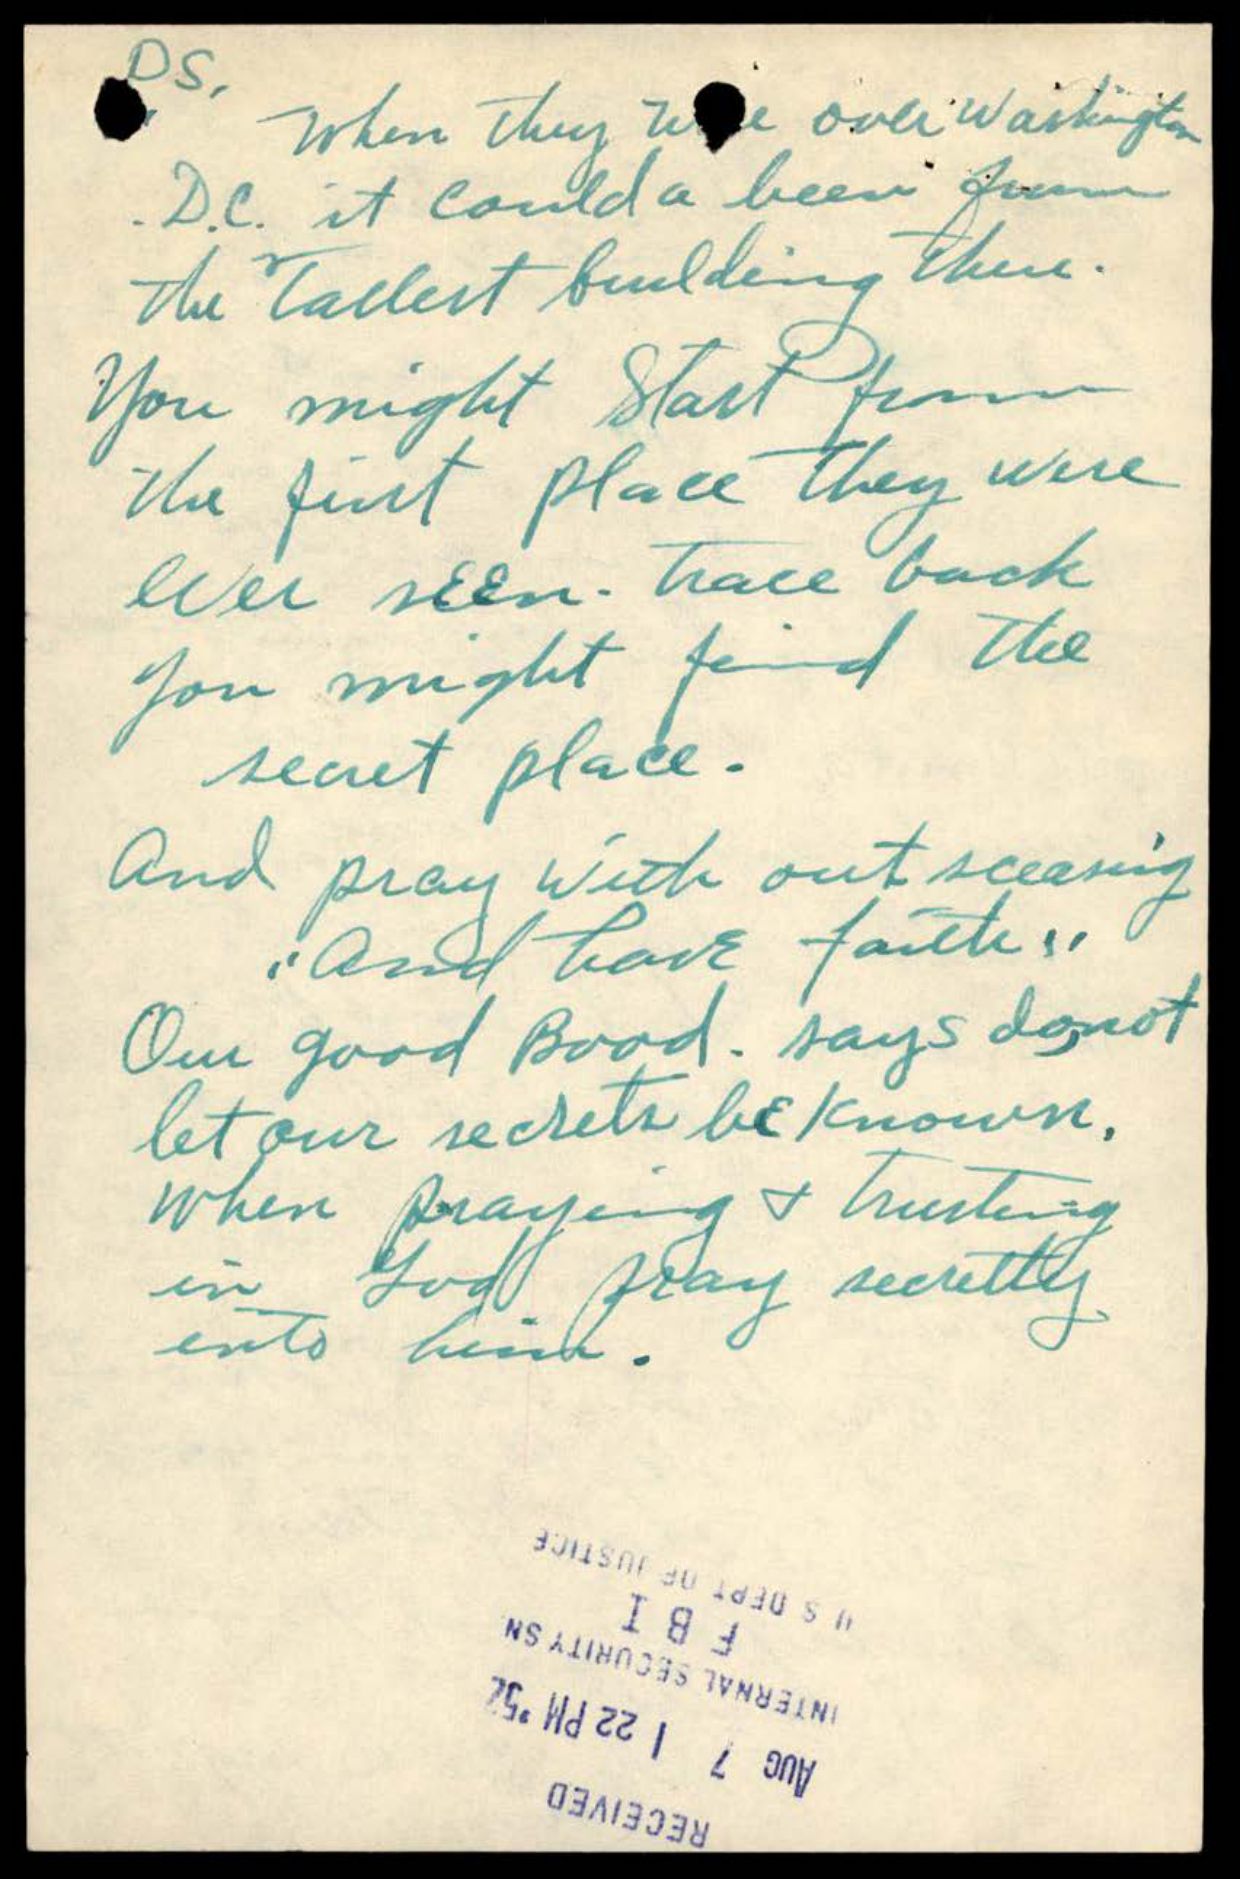 PS.
When they were over Washington
D.C. it coulda been from
the Tallest building there.
You might Start from
the first place they were
ever seen. trace back
you might find the
secret place.
And pray with out sceasing
"And have faith"
Our good Bood. says do not
let our secrets be known.
When praying & trusting
in God pray secrettly
into him.
RECEIVED
AUG 7 1 22 PM '52
INTERNAL SECURITY SN
F B I
U S DEPT OF JUSTICE